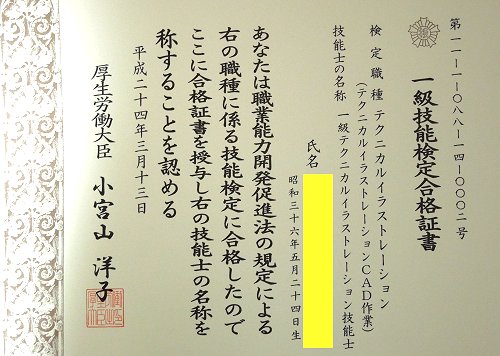 第一一一〇八八一一四一〇〇〇二号
一級技能検定合格証書
検定職種 テクニカルイラストレーション
(テクニカルイラストレーションCAD作業)
技能士の名称 一級テクニカルイラストレーション技能士
氏名
昭和三十六年五月二十四日生
あなたは職業能力開発促進法の規定による
右の職種に係る技能検定に合格したので
ここに合格証書を授与し右の技能士の名称を
称することを認める
平成二十四年三月十三日
厚生労働大臣 小宮山 洋子